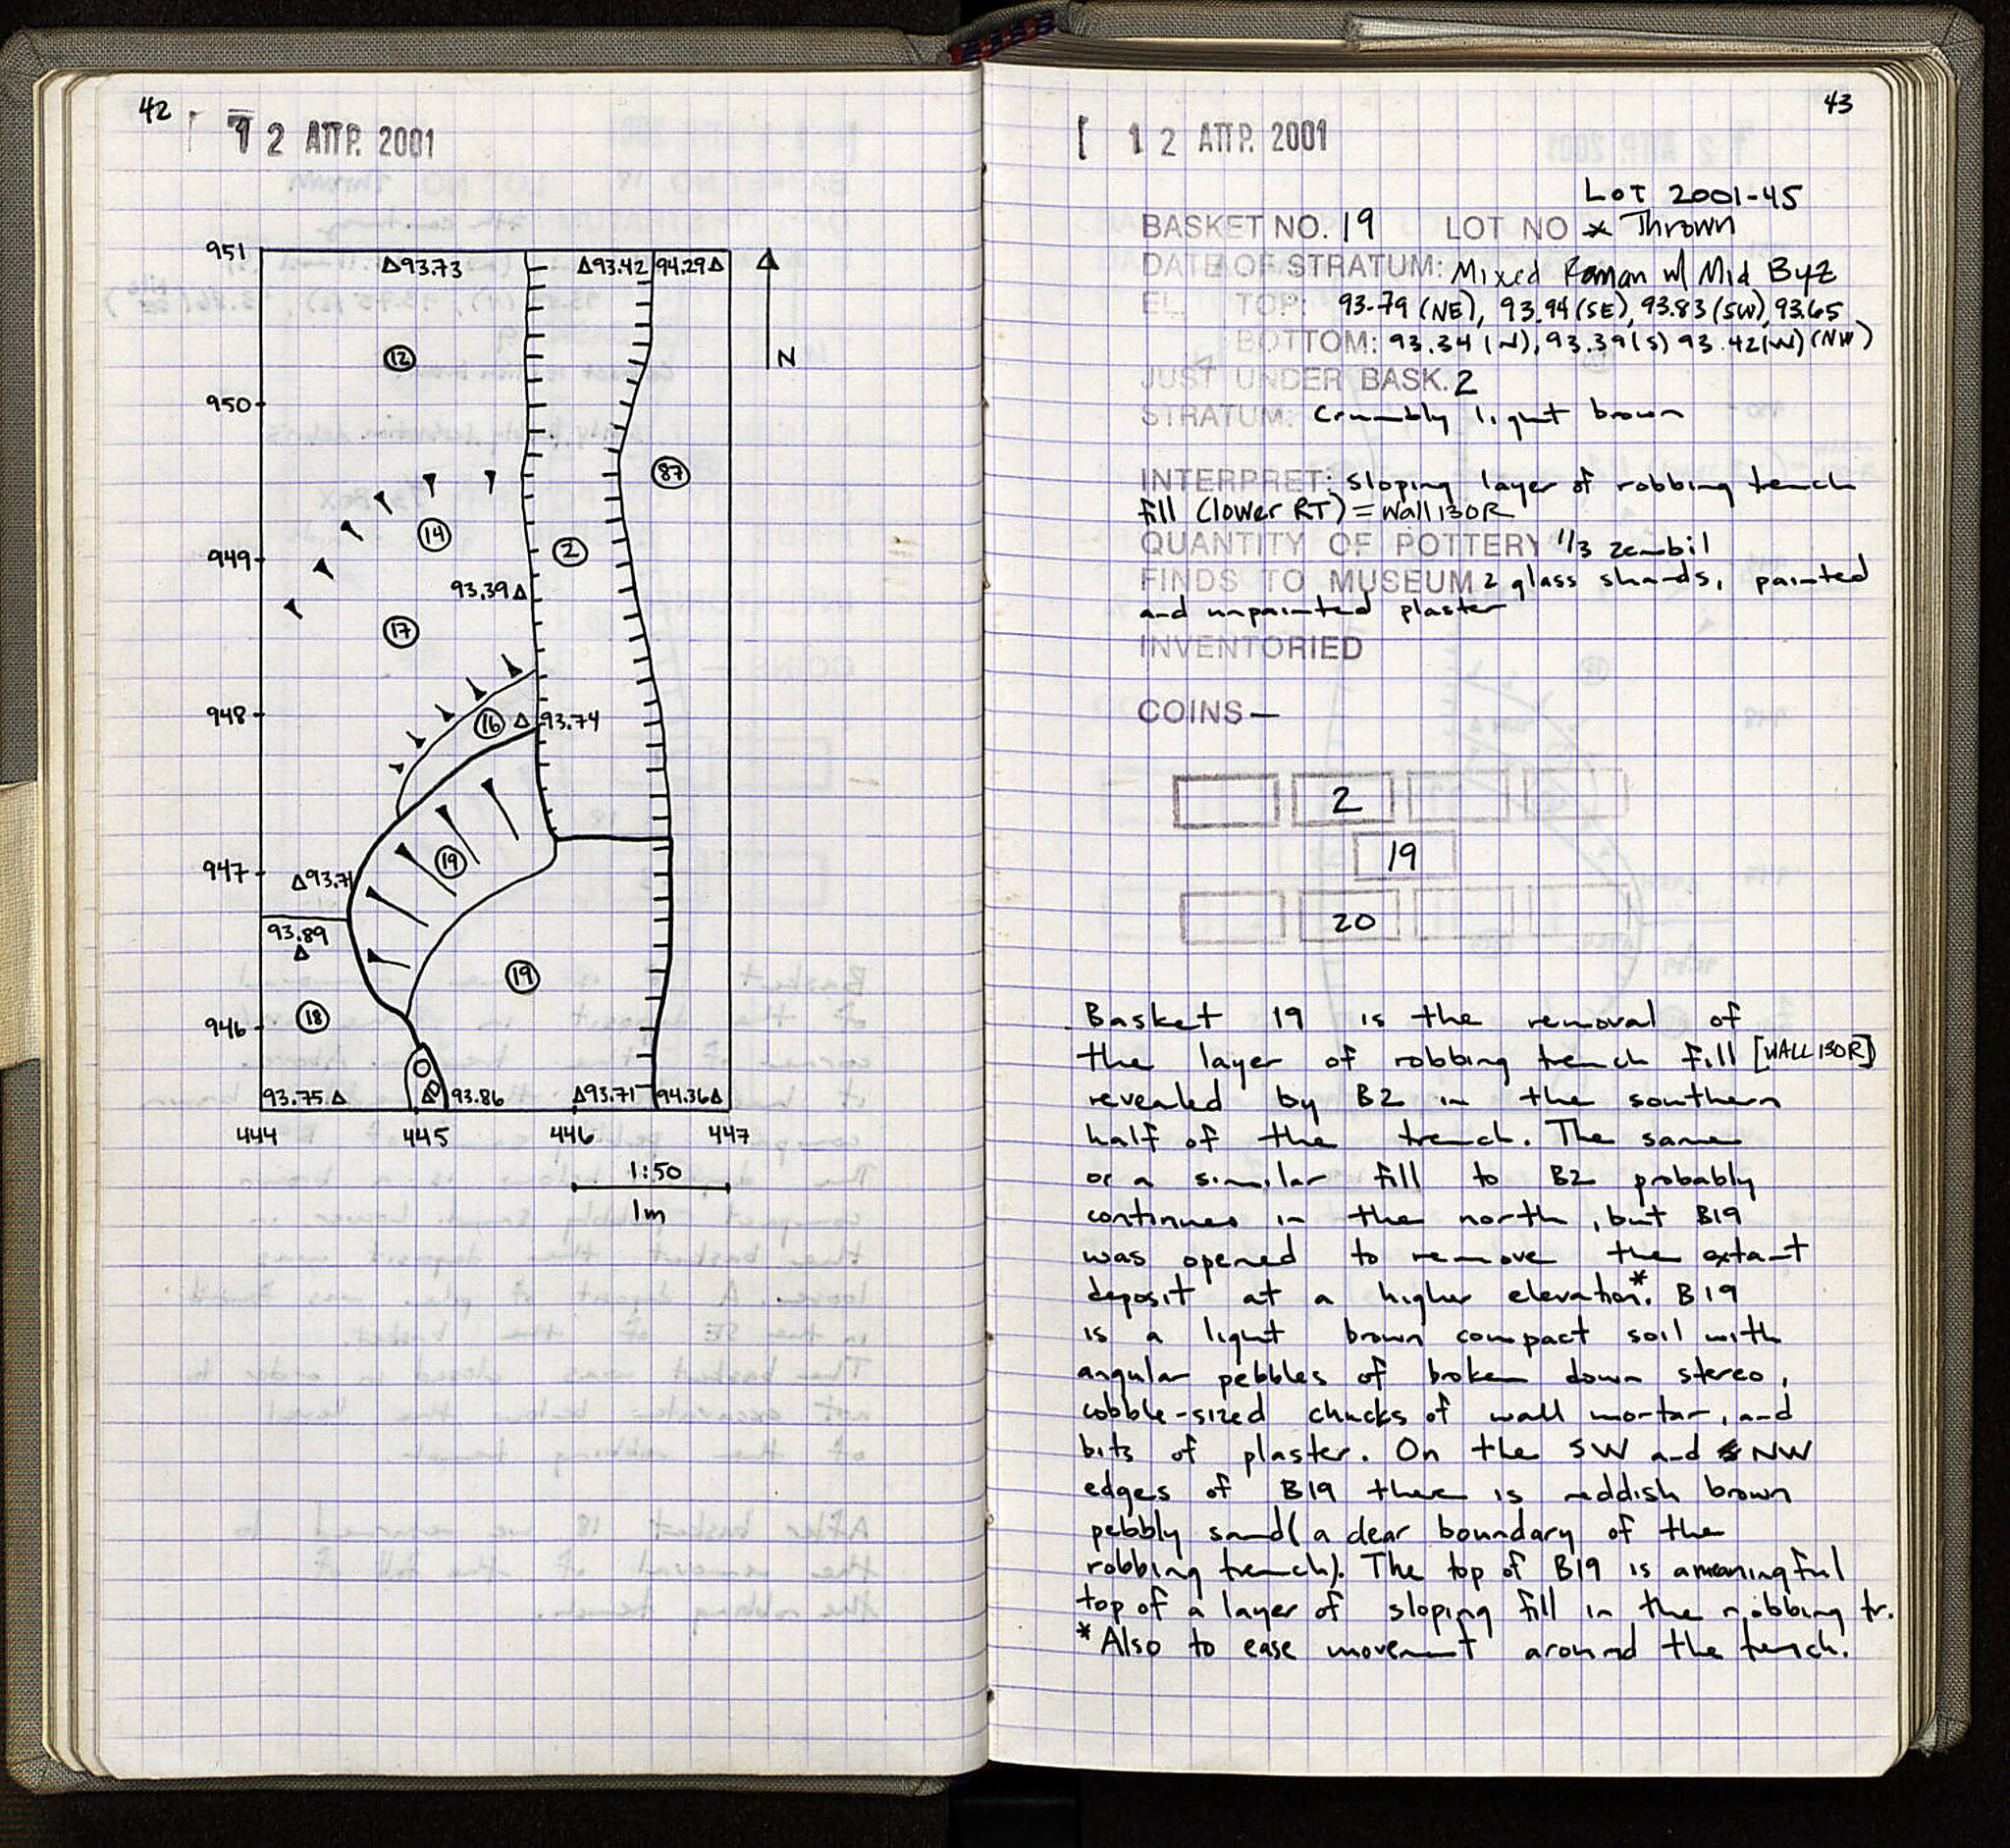 42
12 ΑΠΡ. 2001
951
Δ93.73
Δ93.42
94.29Δ
N
12
950
87
14
2
949
93.39Δ
17
948
16
Δ 93.74
947
19
Δ93.71
93.89
Δ
19
18
946
93.75 Δ
Δ
93.86
Δ93.71
94.36Δ
444
445
446
447
1:50
1m
43
12 ΑΠΡ. 2001
LOT 2001-45
BASKET NO. 19 LOT NO x Thrown
DATE OF STRATUM: Mixed Roman w/ Mid Byz
EL. TOP: 93.79 (NE), 93.94 (SE), 93.83 (SW), 93.65
BOTTOM: 93.34 (N), 93.39 (S) 93.42 (W) (NW)
JUST UNDER BASK. 2
STRATUM: Crumbly light brown
INTERPRET: Sloping layer of robbing trench
fill (lower RT) = Wall 130R
QUANTITY OF POTTERY 1/3 zembil
FINDS TO MUSEUM 2 glass shards, painted
and unpainted plaster
INVENTORIED
COINS —
2
19
20
Basket 19 is the removal of
the layer of robbing trench fill [WALL 130R]
revealed by B2 in the southern
half of the trench. The same
or a similar fill to B2 probably
continues in the north, but B19
was opened to remove the extant
deposit at a higher elevation.* B19
is a light brown compact soil with
angular pebbles of broken down stereo,
cobble-sized chucks of wall mortar, and
bits of plaster. On the SW and NW
edges of B19 there is reddish brown
pebbly sand (a clear boundary of the
robbing trench). The top of B19 is a meaningful
top of a layer of sloping fill in the robbing tr.
* Also to ease movement around the trench.